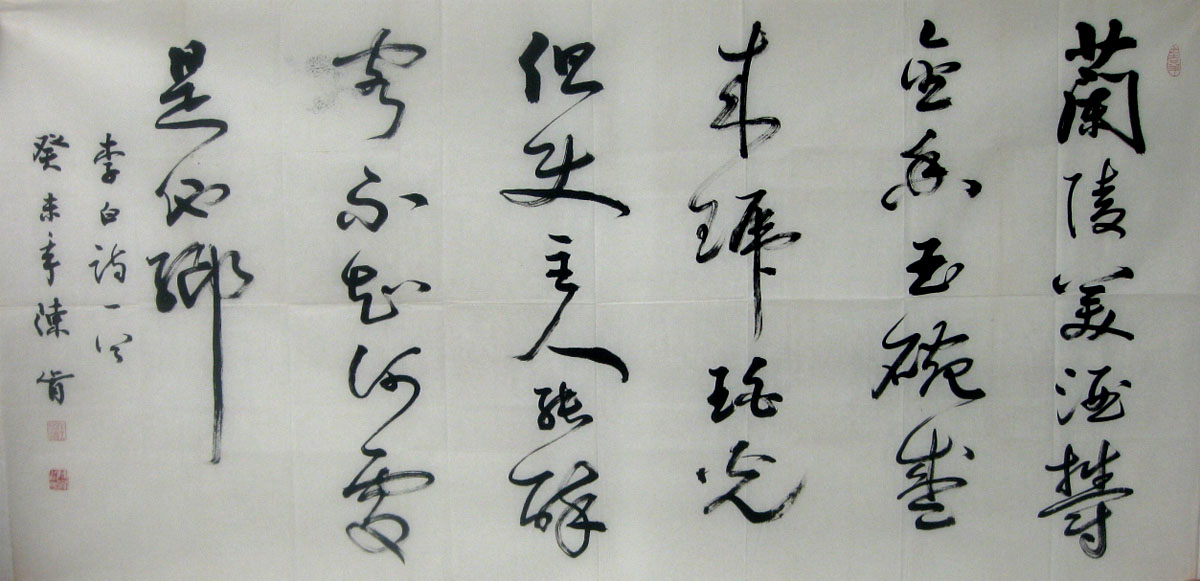 蘭陵美酒鬱
金香玉碗盛
來琥珀光
但使主人能醉
客不知何處
是他鄉
李白詩一首
癸未年陳肯